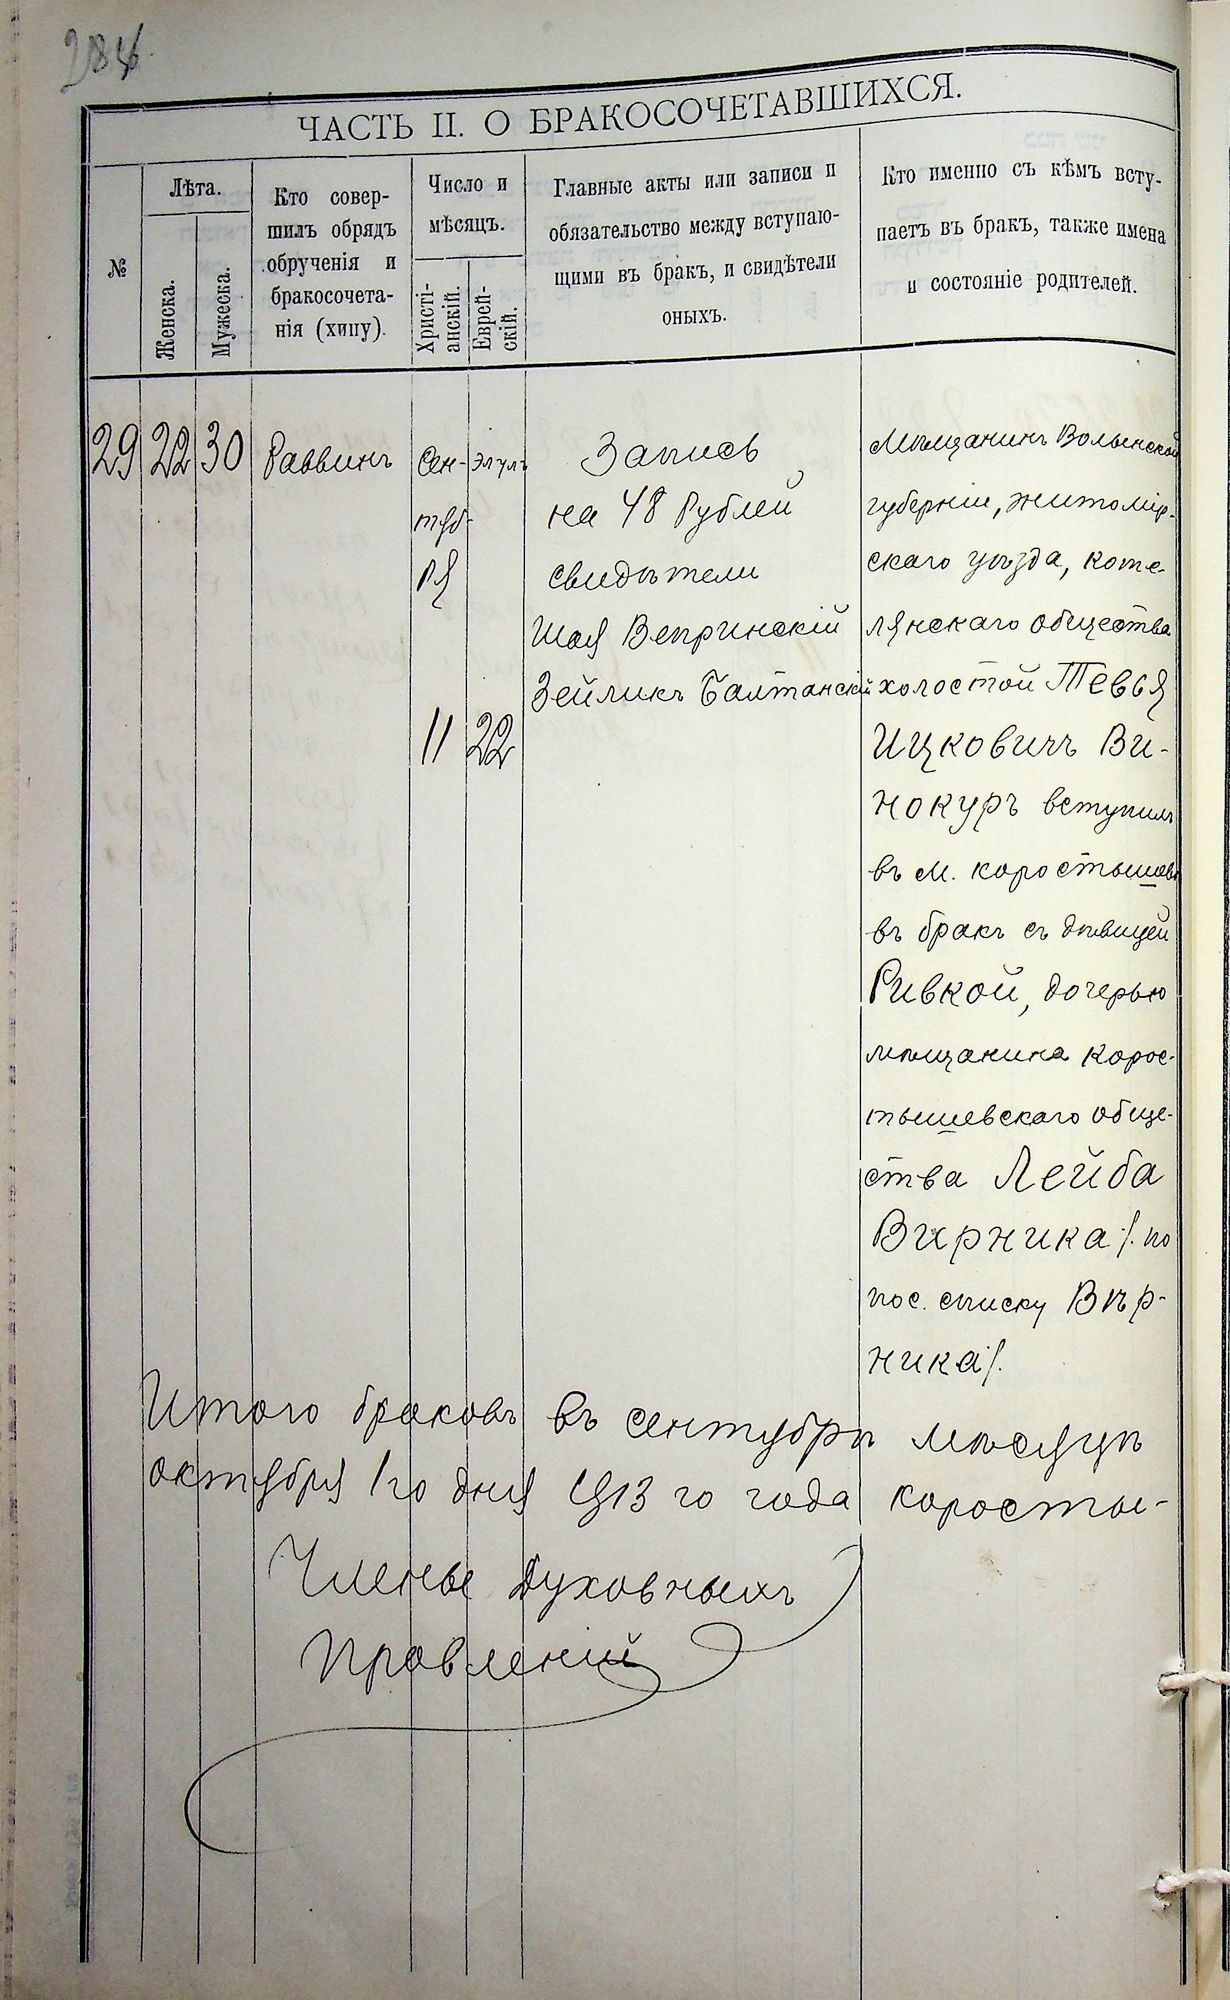 ЧАСТЬ II. О БРАКОСОЧЕТАВШИХСЯ.
№
Лѣта.
Женска.
Мужеска.
Кто совер-
шилъ обрядъ
обрученія и
бракосочета-
нія (хипу).
Число и
мѣсяцъ.
Христі-
анскій.
Еврей-
скій.
Главные акты или записи и
обязательство между вступаю-
щими въ бракъ, и свидѣтели
оныхъ.
Кто именно съ кѣмъ всту-
паетъ въ бракъ, также имена
и состояніе родителей.
29
22
30
Раввинъ
Сен-
тяб-
ря
11
Элулъ
22
Запись
на 48 Рублей
свидѣтели
Шая Вепринскій
Зейликъ Балтанскій
Мѣщанинъ Волынской
губерніи, Житомір-
скаго уѣзда, Коте-
лянскаго общества
холостой Тевья
Ицковичъ Ви-
нокуръ вступилъ
въ м. Коростышевѣ
въ бракъ съ дѣвицей
Ривкой, дочерью
мѣщанина Корос-
тышевскаго обще-
ства Лейба
Вирника /. по
пос. списку Вѣр-
ника/.
Итого браковъ въ сентябрѣ мѣсяцѣ
октября 1го дня 1913 го года Коросты-
Члены Духовныхъ
Правленій